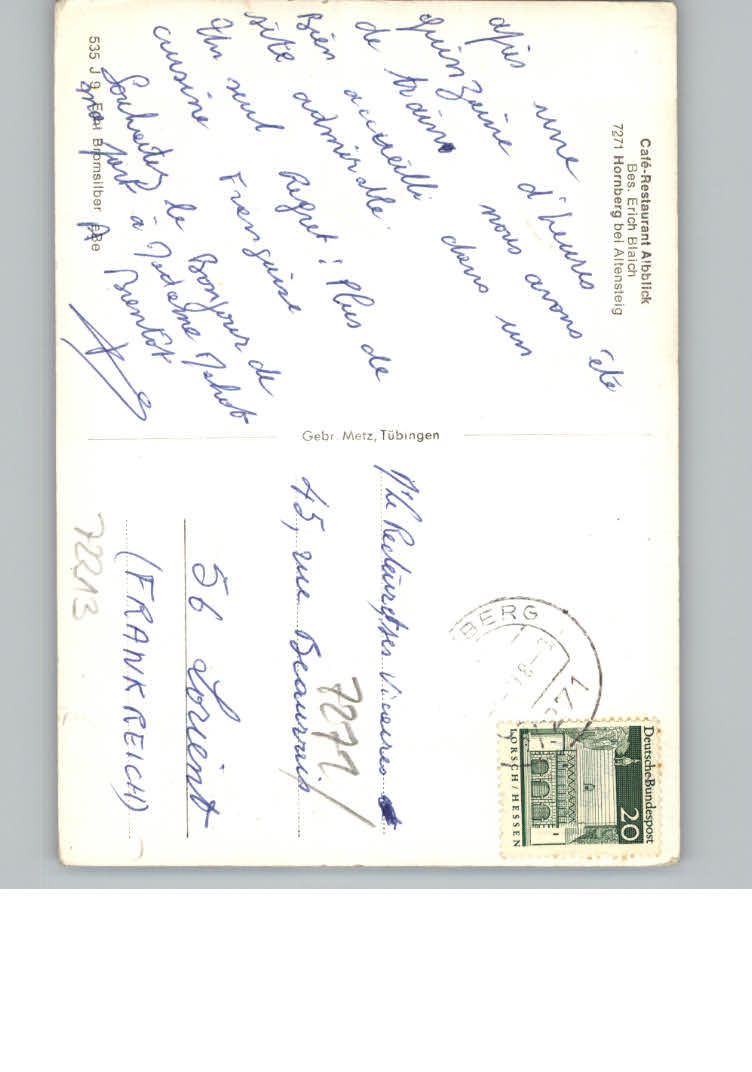 Café-Restaurant Albblick
Bes. Erich Blaich
7271 Hornberg bei Altensteig
après une
quinzaine d'heures
de train nous avons été
Bien accueilli dans un
site admirable.
Un seul Regret! Plus de
cuisine Française
Souhaitez le Bonjour de
ma part à Madame
A Bientôt
535 J 9 Echt Bromsilber
Gebr. Metz, Tübingen
45, rue Beauvais
56 Lorient
(FRANKREICH)
7271/
72213
BERG
7271
Deutsche Bundespost
20
LORSCH / HESSEN